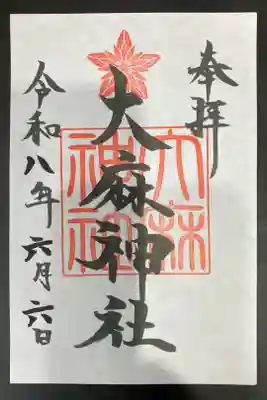 奉拝
大麻神社
大麻
神社
令和八年六月六日